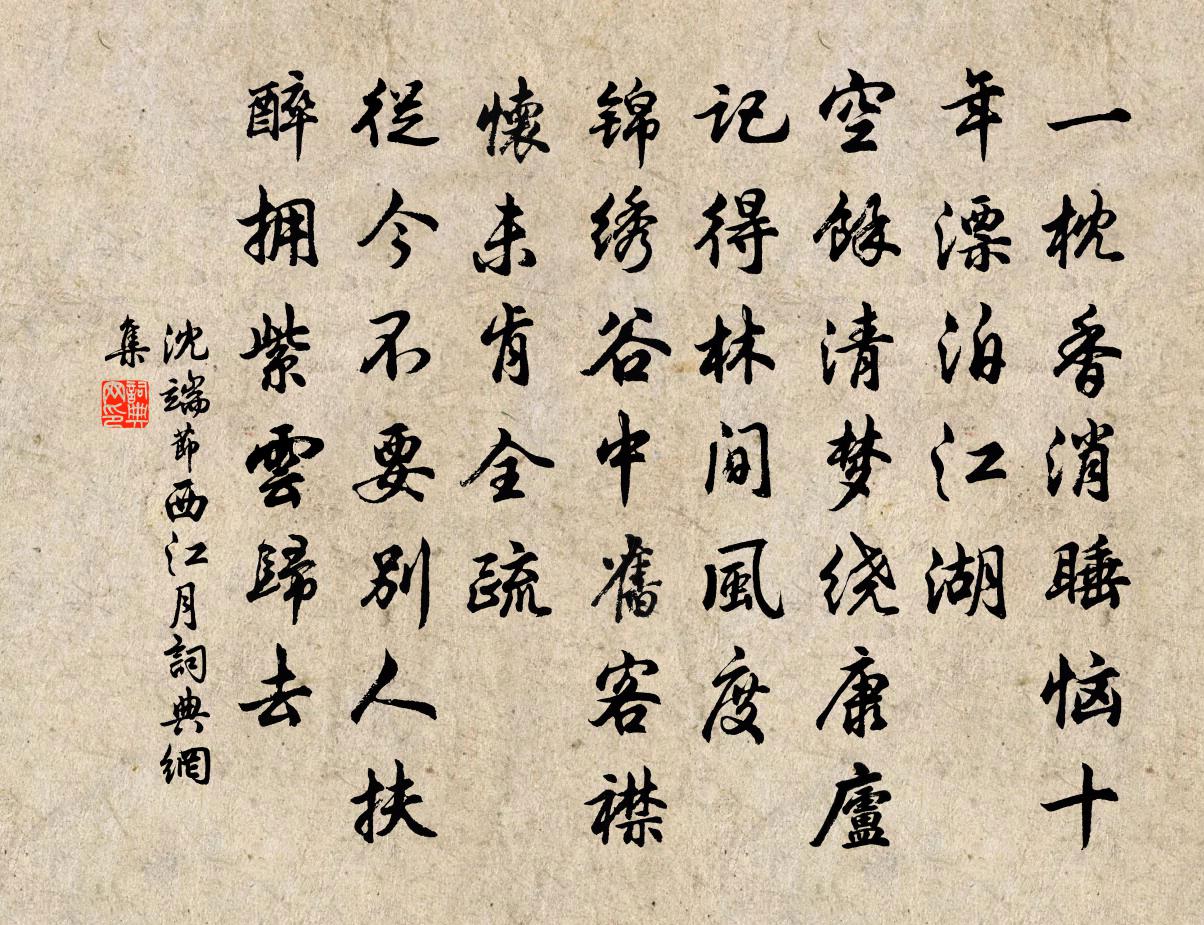 一枕香消睡恼十
年漂泊江湖
空餘清梦绕康廬
记得林间風度
锦绣谷中舊客襟
懷未肯全疏
從今不要别人扶
醉拥紫雲歸去
沈端節西江月詞典網
集
詞典
网印